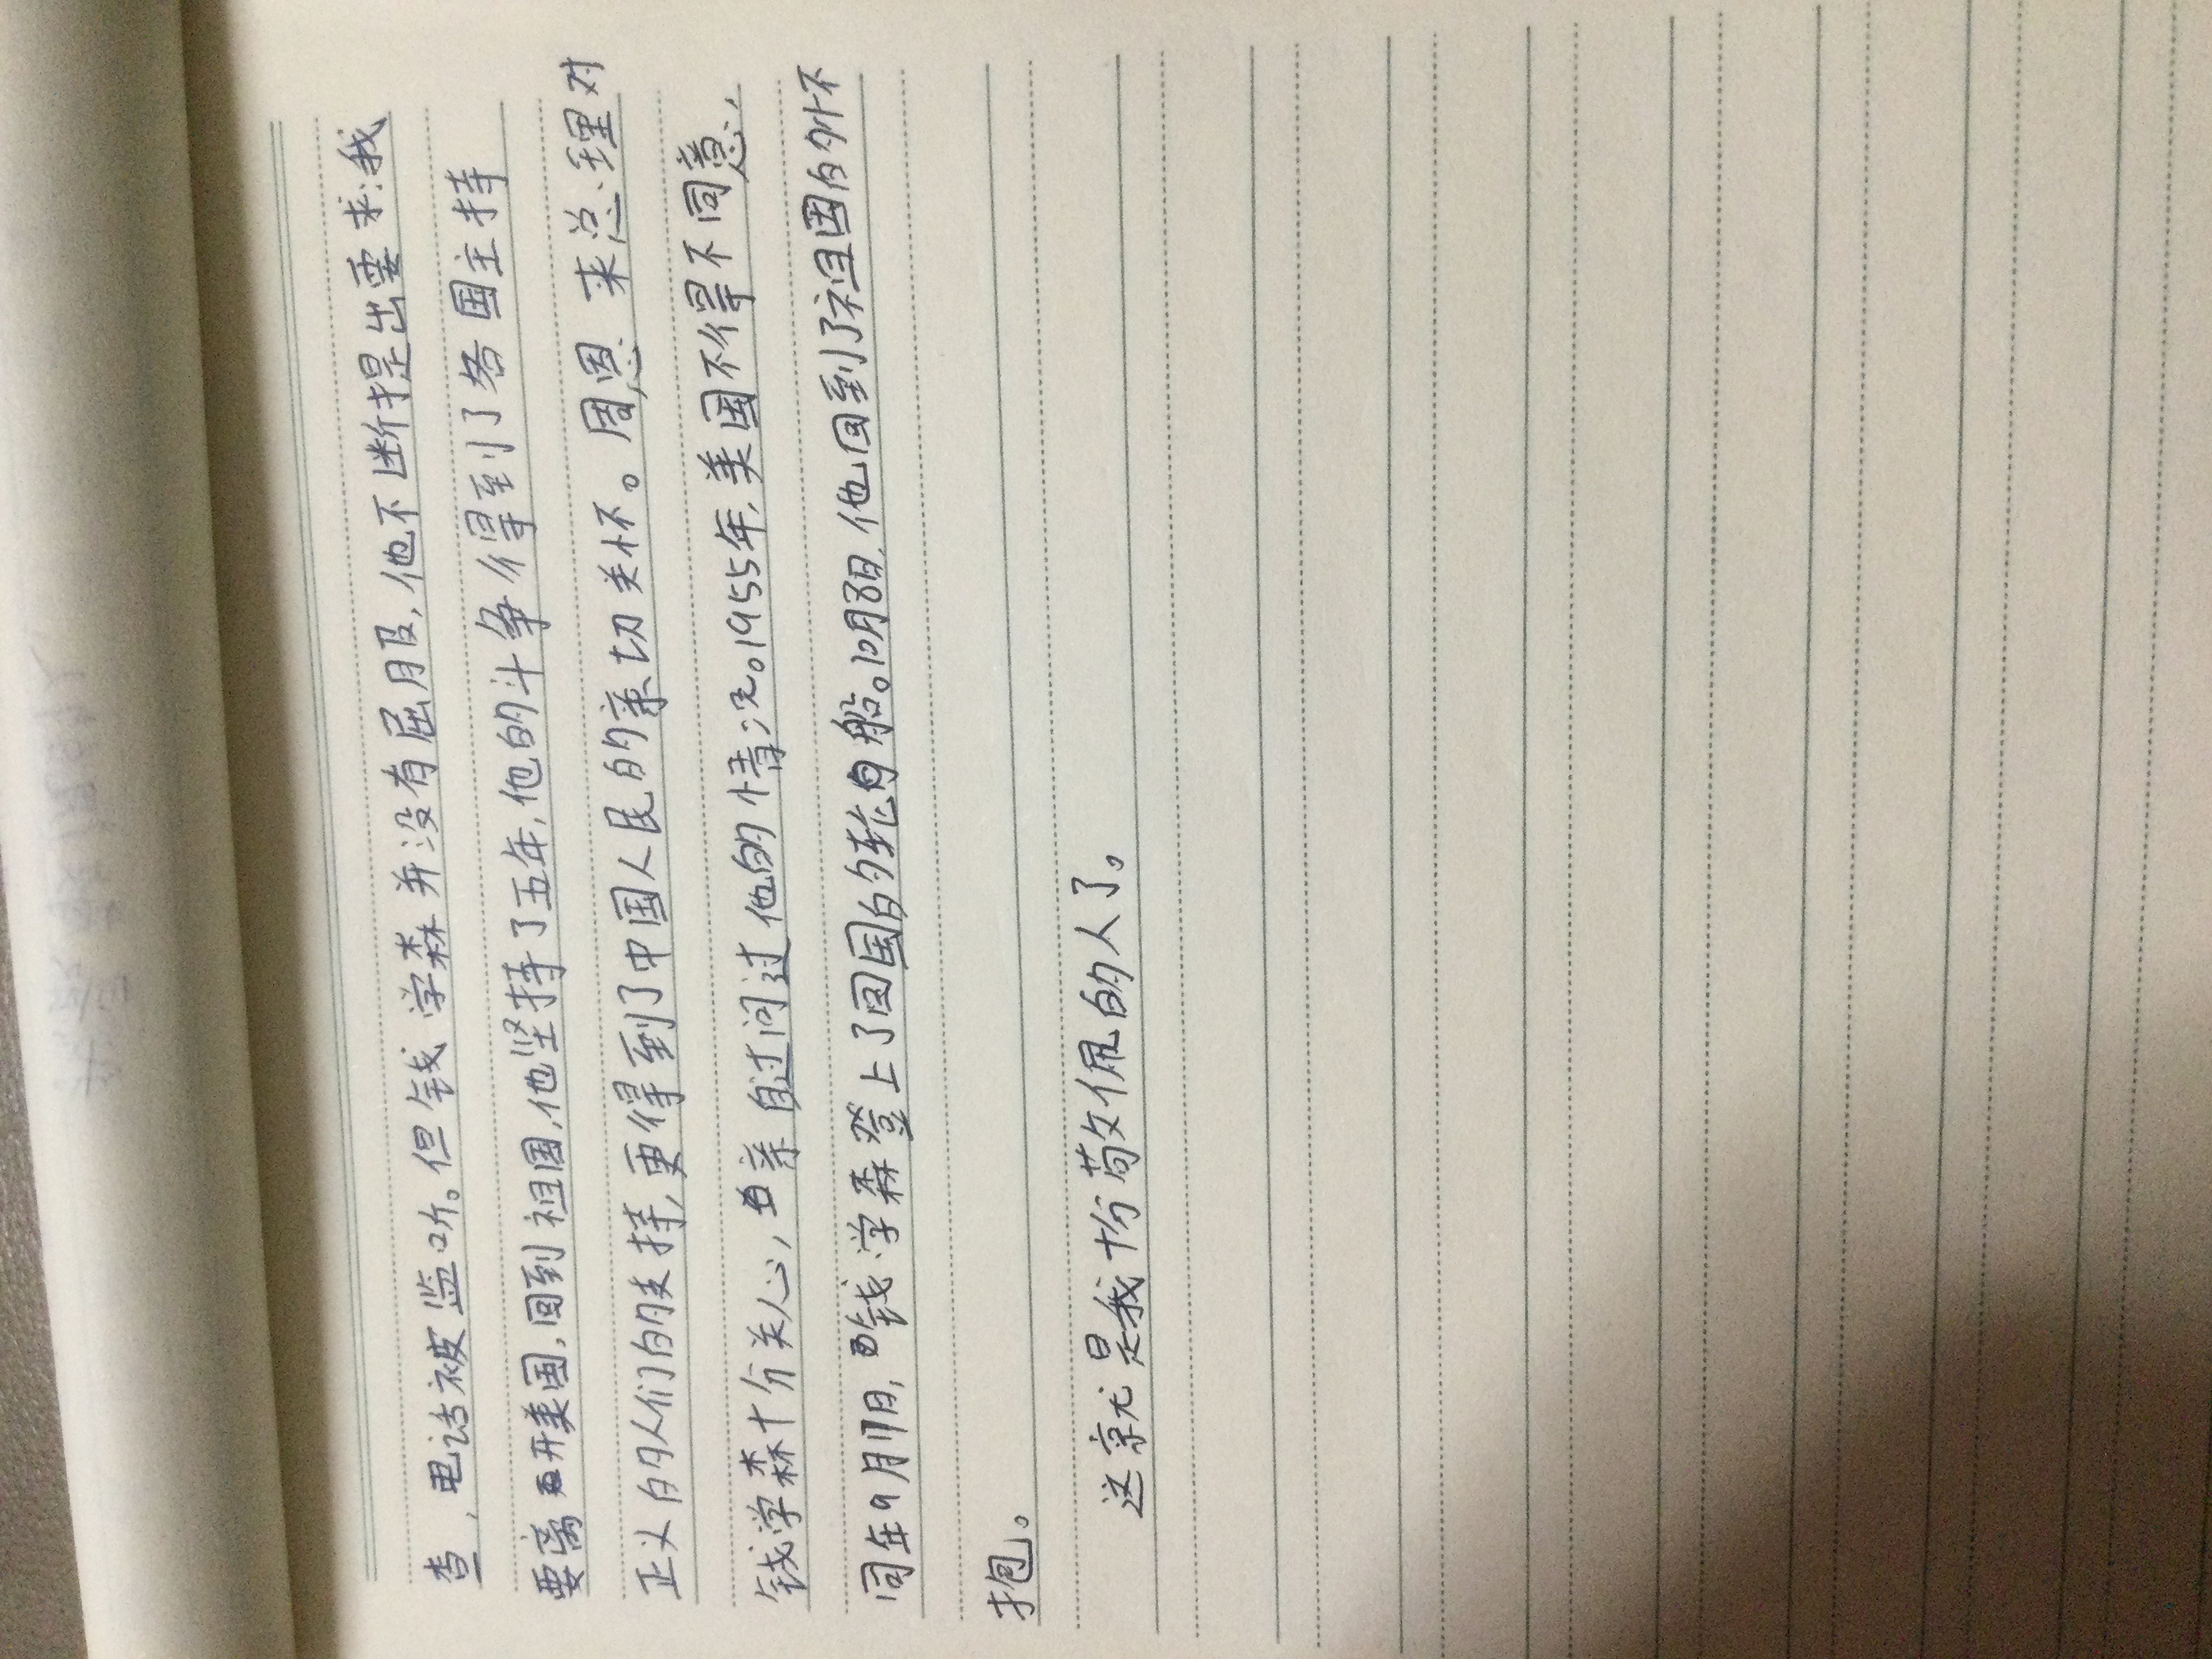 查，电话被监听。但钱学森并没有屈服，他不断提出要求：我
要离开美国，回到祖国，他坚持了五年，他的斗争得到了各国主持
正义的人们的支持，更得到了中国人民的亲切关怀。周恩来总理对
钱学森十分关心，亲自过问过他的情况。1955年，美国不得不同意，
同年9月17日，钱学森登上了回国的轮船。10月8日，他回到了祖国的怀
抱。
这就是我十分敬佩的人了。